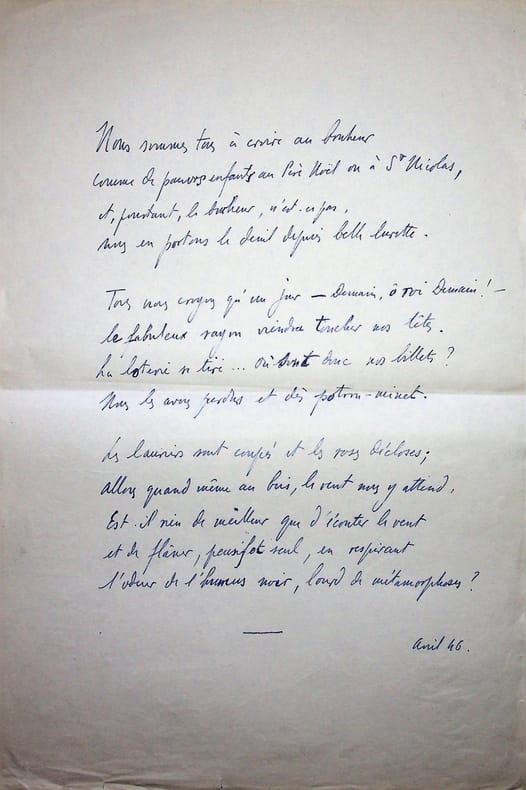 Nous sommes tous à croire au bonheur
comme de pauvres enfants au Père Noël ou à St Nicolas,
et, pourtant, le bonheur, n'est-ce pas,
nous en portons le deuil depuis belle lurette.
Tous nous croyons qu'un jour – Demain, ô roi Demain! –
le fabuleux rayon viendra toucher nos têtes.
La loterie se tire... où sont donc nos billets ?
Nous les avons perdus et dès potron-minet.
Les lauriers sont coupés et les roses décloses;
Allons quand même au bois, le vent nous y attend.
Est-il rien de meilleur que d'écouter le vent
et de flâner, pensif et seul, en respirant
l'odeur de l'humus noir, lourd de métamorphoses ?
Avril 46.